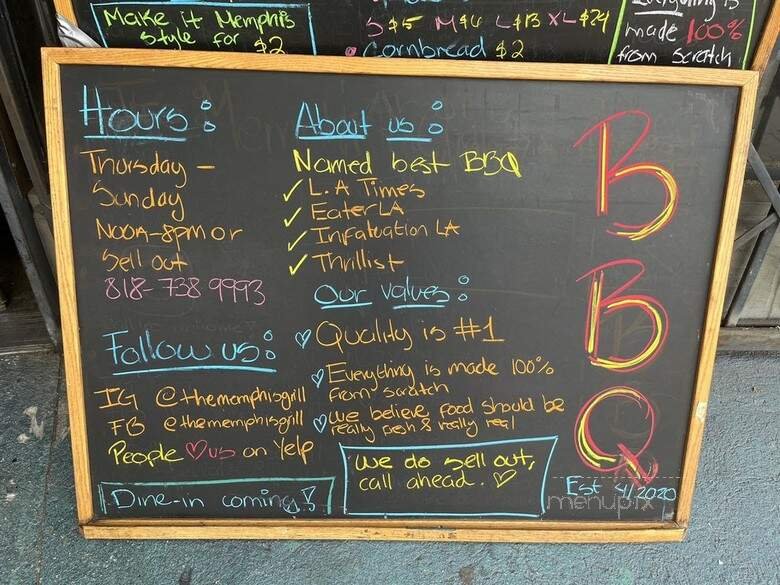 Make it Memphis
style for $2
S $5 M $6 L $13 XL $24
Cornbread $2
Everything is
made 100%
from scratch
Hours:
Thursday -
Sunday
Noon-8pm or
Sell out
818-738 9993
Follow us:
IG @thememphisgrill
FB @thememphisgrill
People us on Yelp
Dine-in coming!
About us:
Named best BBQ
L.A Times
Eater LA
Infatuation LA
Thrillist
Our values:
Quality is #1
Everything is made 100%
from scratch
we believe food should be
really fresh & really real
we do sell out,
call ahead.
BBQ
Est 4/2020
menupix